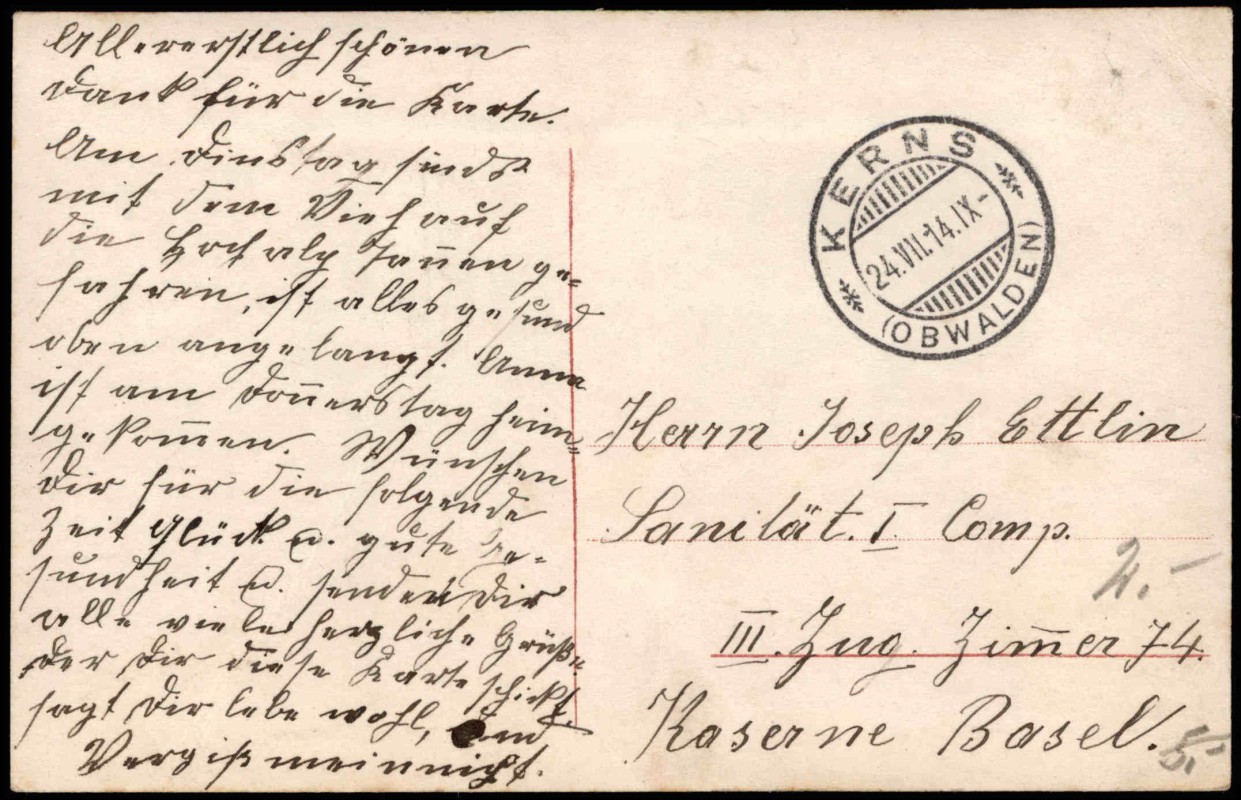 Allererstlich schönen
Dank für die Karte.
Am Dinstag sinds
mit dem Vieh auf
die Hochalp Tannen ge-
fahren, ist alles gesund
oben angelangt. Anna
ist am Don̄erstag heim-
gekom̄en. Wünschen
Dir für die folgende
Zeit Glück u. gute Ge-
sundheit u. senden Dir
alle viele herzliche Grüße.
Der Dir diese Karte schickt,
sagt Dir lebe wohl, und
Vergißmeinnicht.
KERNS
24.VII.14.IX-
(OBWALDEN)
Herrn Joseph Ettlin
Sanität. I. Comp.
2.-
III. Zug. Zim̄er 74.
Kaserne Basel.